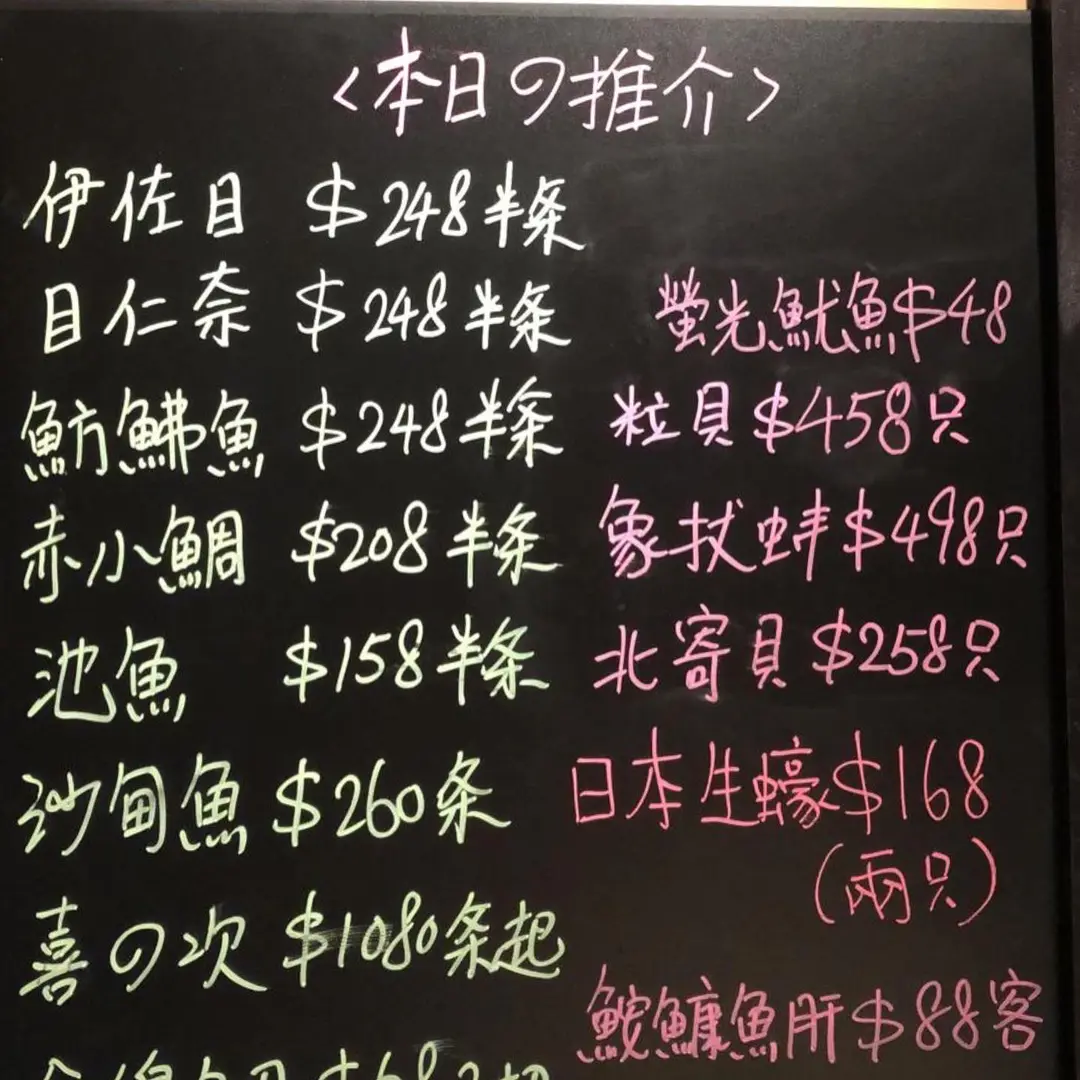 <本日の推介>
伊佐目 $248半条
目仁奈 $248半条
魴鮄魚 $248半条
赤小鯛 $208半条
池魚 $158半条
沙甸魚 $260条
喜の次 $1080条起
螢光魷魚$48
粒貝$458只
象拔蚌$498只
北寄貝$258只
日本生蠔$168
(兩只)
鮟鱇魚肝$88客